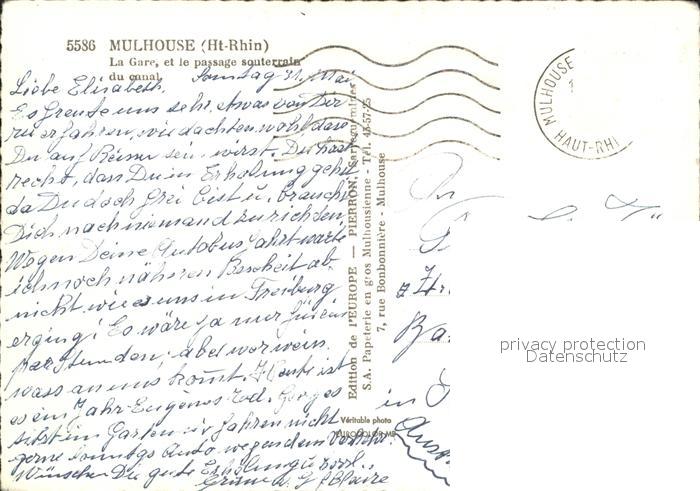 5586 MULHOUSE (Ht-Rhin)
La Gare, et le passage souterrain
du canal
Sonntag 31. Mai
Liebe Elisabeth,
Es freute uns sehr, etwas von Dir
zu erfahren, wir dachten wohl dass
Du auf Reisen sein wirst. Du hast
recht, dass Du in Erholung gehst
da Du doch frei bist u. brauchst
Dich nach niemand zu richten.
Wegen Deine Autobus fahrt warte
ich noch nähren Bescheit ab
nicht wie es uns in Freiburg
erging! Es wäre ja nur für ein
paar Stunden, aber wer weis
was an uns kommt. Heute ist
es ein Jahr Eugènes Tod. Georges
sitzt im Garten wir fahren nicht
gerne sonntags Auto wegen dem Verkehr.
Wünschen Dir gute Erholung
Grüsse
Claire
Edition de l'EUROPE — PIERRON, Sarreguemines
S.A. Papeterie en gros Mulhousienne - Tél. 45-57-25
7, rue Bonbonnière - Mulhouse
Véritable photo
MULHOUSE
HAUT-RHI
Ba
in
privacy protection
Datenschutz